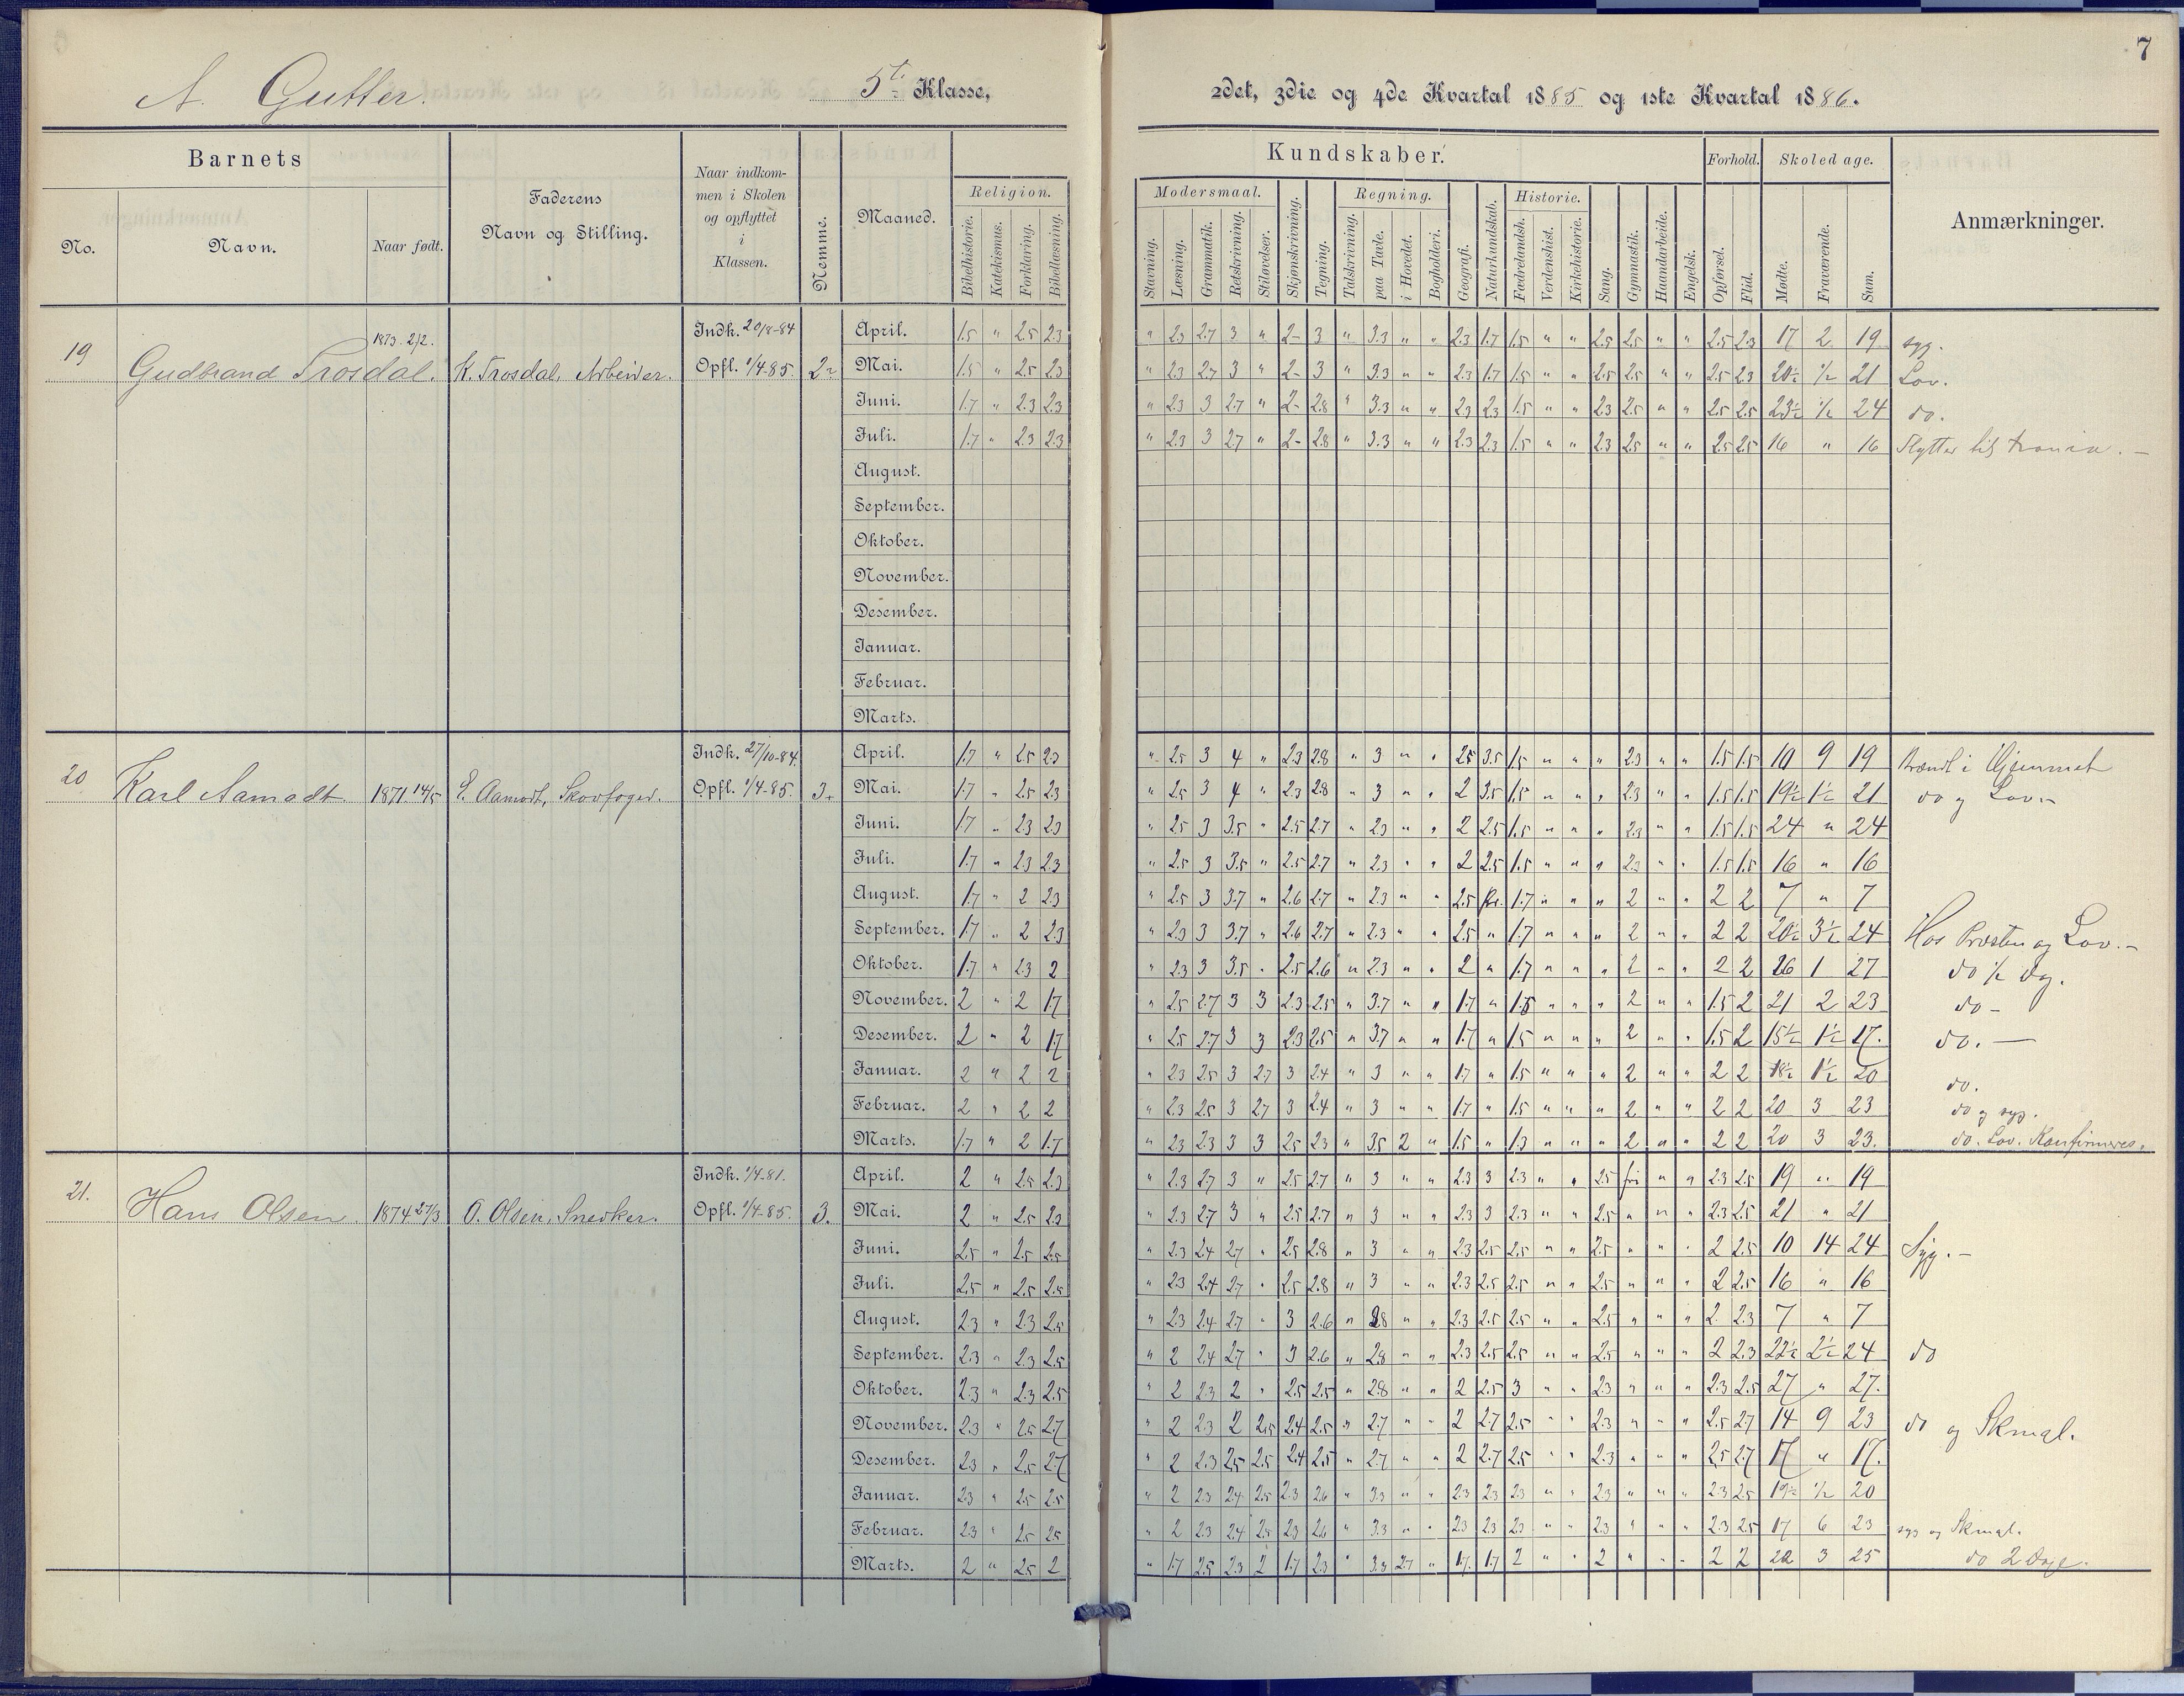 7
A. Gutter. 5te Klasse, 2det, 3die og 4de Kvartal 1885 og 1ste Kvartal 1886.
Barnets
Kundskaber.
Forhold. Skoledage.
No. Navn. Naar født.
Faderens
Navn og Stilling.
Naar indkom-
men i Skolen
og opflyttet
i
Klassen.
Nemme.
Maaned.
Religion. Modersmaal. Regning. Historie.
Bibelhistorie. Katekismus. Forklaring. Bibellæsning. Stavning. Læsning. Grammatik. Retskrivning. Stiløvelser. Skjønskrivning. Tegning. Talskrivning. paa Tavle. i Hovedet. Bogholderi. Geografi. Naturkundskab. Fædrelandsh. Verdenshist. Kirkehistorie. Sang. Gymnastik. Haandarbeide. Engelsk. Opførsel. Flid. Mødte. Fraværende. Sum.
Anmærkninger.
19 Gudbrand Trosdal. 1873 2/2. K. Trosdal, Arbeider. Indk. 20/8-84 Opfl. 1/4-85. 2-
April. 1.5 " 2.5 2.3 " 2.3 2.7 3 " 2- 3 " 3.3 " " 2.3 1.7 1.5 " " 2.5 2.5 " " 2.5 2.3 17 2 19 syg.
Mai. 1.5 " 2.5 2.3 " 2.3 2.7 3 " 2- 3 " 3.3 " " 2.3 1.7 1.5 " " 2.5 2.5 " " 2.5 2.3 20½ ½ 21 Lov.
Juni. 1.7 " 2.3 2.3 " 2.3 3 2.7 " 2- 2.8 " 3.3 " " 2.3 2.3 1.5 " " 2.3 2.5 " " 2.5 2.5 23½ ½ 24 do.
Juli. 1.7 " 2.3 2.3 " 2.3 3 2.7 " 2- 2.8 " 3.3 " " 2.3 2.3 1.5 " " 2.3 2.5 " " 2.5 2.5 16 " 16 Flytter til
August.
September.
Oktober.
November.
Desember.
Januar.
Februar.
Marts.
20 Karl Aamodt 1871 14/5 E. Aamodt, Skovfoged. Indk. 27/10-84. Opfl. 1/4-85. 3.
April. 1.7 " 2.5 2.3 " 2.5 3 4 " 2.3 2.8 " 3 " " 2.5 3.5 1.5 " " " 2.3 " " 1.5 1.5 10 9 19 i Hjemmet
Mai. 1.7 " 2.5 2.3 " 2.5 3 4 " 2.3 2.8 " 3 " " 2 3.5 1.5 " " " 2.3 " " 1.5 1.5 19½ 1½ 21 do og Lov.
Juni. 1.7 " 2.3 2.3 " 2.5 3 3.5 " 2.5 2.7 " 2.3 " " 2 2.5 1.5 " " " 2.3 " " 1.5 1.5 24 " 24
Juli. 1.7 " 2.3 2.3 " 2.5 3 3.5 " 2.5 2.7 " 2.3 " " 2 2.5 1.5 " " " 2.3 " " 1.5 1.5 16 " 16
August. 1.7 " 2 2.3 " 2.5 3 3.7 " 2.6 2.7 " 2.3 " " 2.5 fri. 1.7 " " " 2 " " 2 2 7 " 7
September. 1.7 " 2 2.3 " 2.3 3 3.7 " 2.6 2.7 " 2.3 " " 2.5 " 1.7 " " " 2 " " 2 2 20½ 3½ 24 Hos Præsten og Lov.-
Oktober. 1.7 " 2.3 2 " 2.3 3 3.5 " 2.5 2.6 " 2.3 " " 2 " 1.7 " " " 2 " " 2 2 26 1 27 do ½ Dag.
November. 2 " 2 1.7 " 2.5 2.7 3 3 2.3 2.5 " 3.7 " " 1.7 " 1.5 " " " 2 " " 1.5 2 21 2 23 do -
Desember. 2 " 2 1.7 " 2.5 2.7 3 3 2.3 2.5 " 3.7 " " 1.7 " 1.5 " " " 2 " " 1.5 2 15½ 1½ 17. do. -
Januar. 2 " 2 2 " 2.3 2.5 3 2.7 3 2.4 " 3 " " 1.7 " 1.5 " " " 2 " " 2 2 18½ 1½ 20 do.
Februar. 2 " 2 2 " 2.3 2.5 3 2.7 3 2.4 " 3 " " 1.7 " 1.5 " " " 2 " " 2 2 20 3 23 do og syg.
Marts. 1.7 " 2 1.7 " 2.3 2.3 3 3 2.5 2.3 " 3.5 2 " 1.5 " 1.3 " " " 2 " " 2 2 20 3 23. do. Lov. Konfirmeres.
21. Hans Olsen 1874 27/3 O. Olsen, Snedker. Indk. 1/4-81. Opfl. 1/4-85. 3.
April. 2 " 2.5 2.3 " 2.3 2.7 3 " 2.5 2.7 " 3 " " 2.3 3 2.3 " " 2.5 fri " " 2.3 2.5 19 " 19
Mai. 2 " 2.5 2.3 " 2.3 2.7 3 " 2.5 2.7 " 3 " " 2.3 3 2.3 " " 2.5 " " " 2.3 2.5 21 " 21
Juni. 2.5 " 2.5 2.5 " 2.3 2.4 2.7 " 2.5 2.8 " 3 " " 2.3 2.5 2.5 " " 2.5 " " " 2 2.5 10 14 24 Syg.-
Juli. 2.5 " 2.5 2.5 " 2.3 2.4 2.7 " 2.5 2.8 " 3 " " 2.3 2.5 2.5 " " 2.5 " " " 2 2.5 16 " 16
August. 2.3 " 2.3 2.5 " 2.3 2.4 2.7 " 3 2.6 " 2.8 " " 2.3 2.5 2.5 " " 2.5 " " " 2. 2.3 7 " 7
September. 2.3 " 2.3 2.5 " 2 2.4 2.7 " 3 2.6 " 2.8 " " 2.3 2.5 2.5 " " 2.5 " " " 2 2.3 22½ 2½ 24 do
Oktober. 2.3 " 2.3 2.5 " 2 2.3 2 " 2.5 2.5 " 2.8 " " 2 2.5 3 " " 2.3 " " " 2.3 2.5 27 " 27.
November. 2.3 " 2.5 2.7 " 2 2.3 2 2.5 2.4 2.5 " 2.7 " " 2 2.7 2.5 " " 2.3 " " " 2.5 2.7 14 9 23 do og Skmgl.
Desember. 2.3 " 2.5 2.7 " 2 2.3 2.5 2.5 2.4 2.5 " 2.7 " " 2 2.7 2.5 " " 2.3 " " " 2.5 2.7 17 " 17.
Januar. 2.3 " 2.5 2.5 " 2 2.3 2.4 2.5 2.3 2.6 " 3.3 " " 2.3 2.3 2.3 " " 2.3 " " " 2.3 2.5 19½ ½ 20
Februar. 2.3 " 2.5 2.5 " 2 2.3 2.4 2.5 2.3 2.6 " 3.3 " " 2.3 2.3 2.3 " " 2.3 " " " 2.3 2.5 17 6 23 syg og Skmgl.
Marts. 2 " 2.5 2 " 1.7 2.5 2.3 2 1.7 2.3 " 3.3 2.7 " 1.7. 1.7 2 " " 2 " " " 2 2 22 3 25 do 2 Dage.